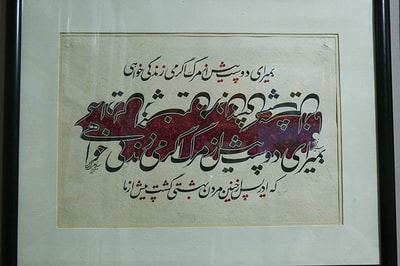 بمیر ای دوست پیش از مرگ اگر می زندگی خواهی
بمیر ای دوست پیش از مرگ اگر می زندگی خواهی
که ادریس از چنین مردن بهشتی گشت پیش از ما